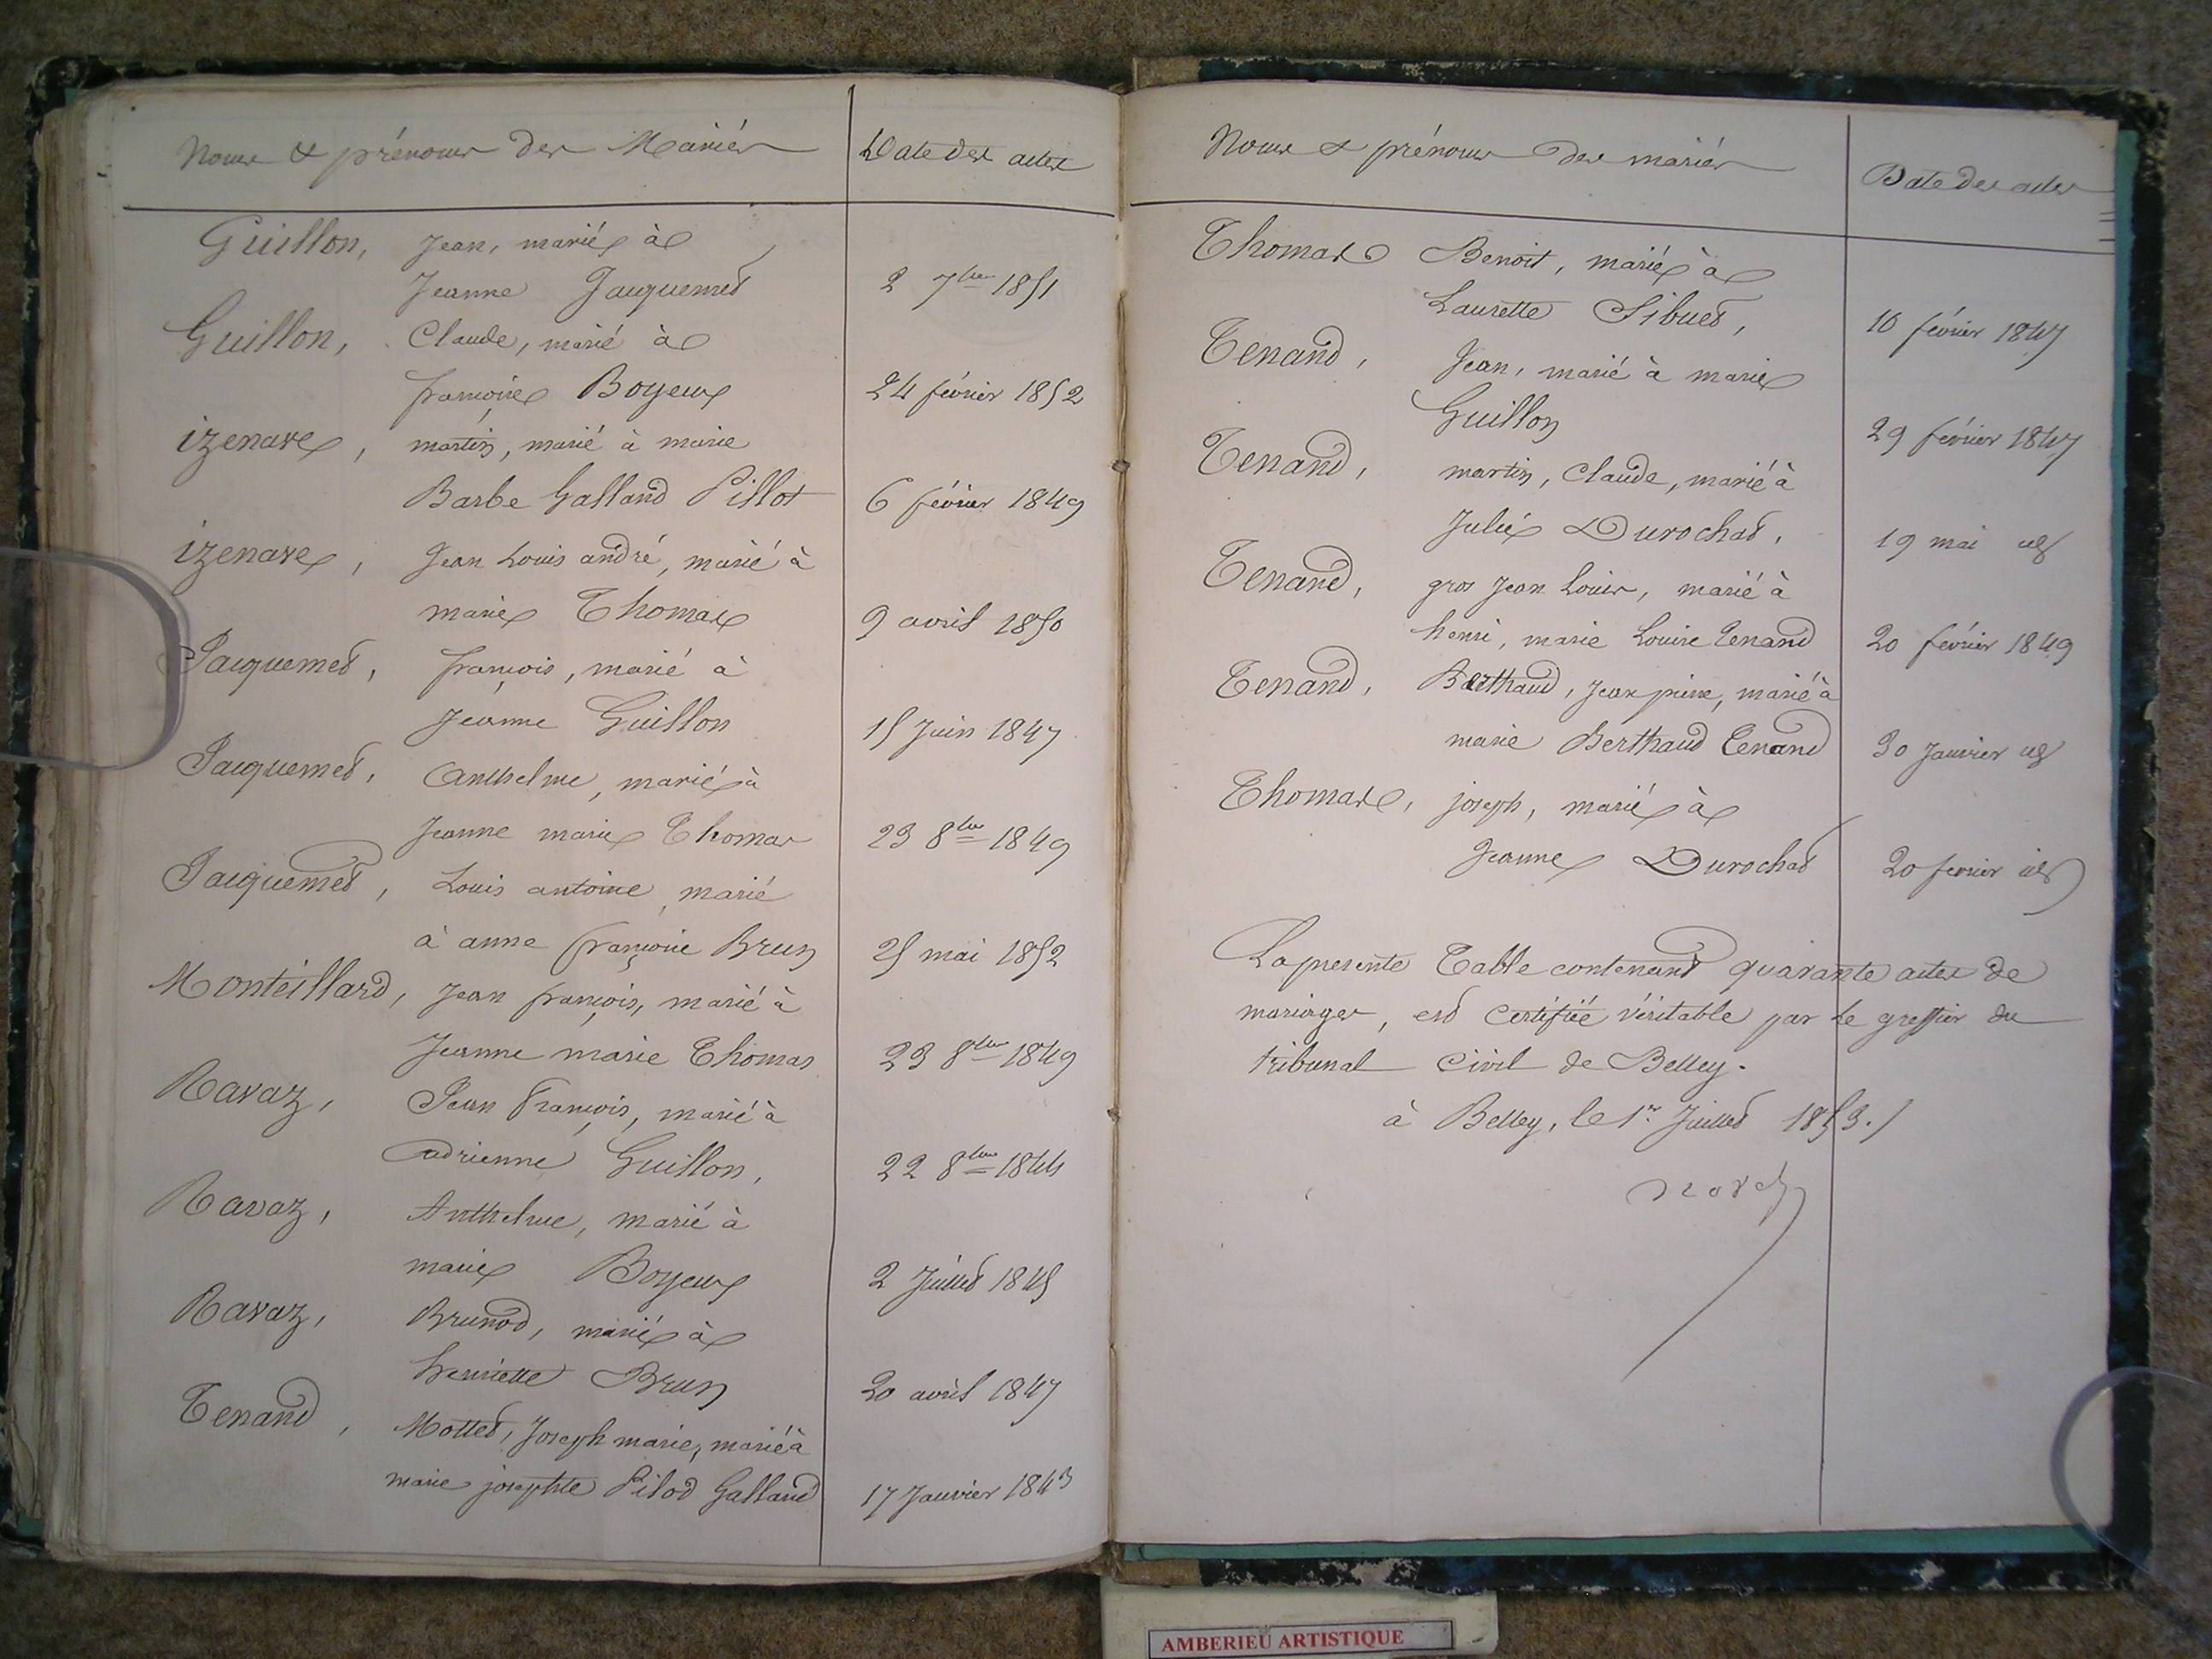 Noms & prénoms des Mariés Date des actes
Guillon, Jean, marié à
Jeanne Jacquemet 2 7bre 1851
Guillon, Claude, marié à
françoise Boyeux 24 février 1852
izenave, martin, marié à marie
Barbe Galland Pillot 6 février 1849
izenave, Jean Louis andré, marié à
marie Thomas 9 avril 1850
Jacquemet, françois, marié à
Jeanne Guillon 15 Juin 1847
Jacquemet, Anthelme, marié à
Jeanne marie Thomas 23 8bre 1849
Jacquemet, Louis antoine, marié
à anne françoise Brun 25 mai 1852
Monteillard, Jean françois, marié à
Jeanne marie Thomas 23 8bre 1849
Ravaz, Jean François, marié à
adrienne Guillon, 22 8bre 1844
Ravaz, Anthelme, marié à
marie Boyeux 2 Juillet 1845
Ravaz, Brunod, marié à
henriette Brun 20 avril 1847
Tenand, Mottet, Joseph marie, marié à
marie josephte Pilod Galland 17 Janvier 1843
Noms & prénoms des mariés Date des actes
Thomas Benoit, marié à
Laurette Sibuet, 16 février 1847
Tenand, Jean, marié à marie
Guillon 29 février 1847
Tenand, martin, Claude, marié à
Julie Durochat, 19 mai id
Tenand, gros Jean Louis, marié à
henri, marie Louise Tenand 20 février 1849
Tenand, Berthaud, Jean pierre, marié à
marie Berthaud Tenand 30 Janvier id
Thomas, joseph, marié à
Jeanne Durochat 20 fevrier id
La presente Table contenant quarante actes de
mariages, est certifiée véritable par le greffier du
tribunal civil de Belley.
à Belley, le 1er Juillet 1853.
AMBERIEU ARTISTIQUE